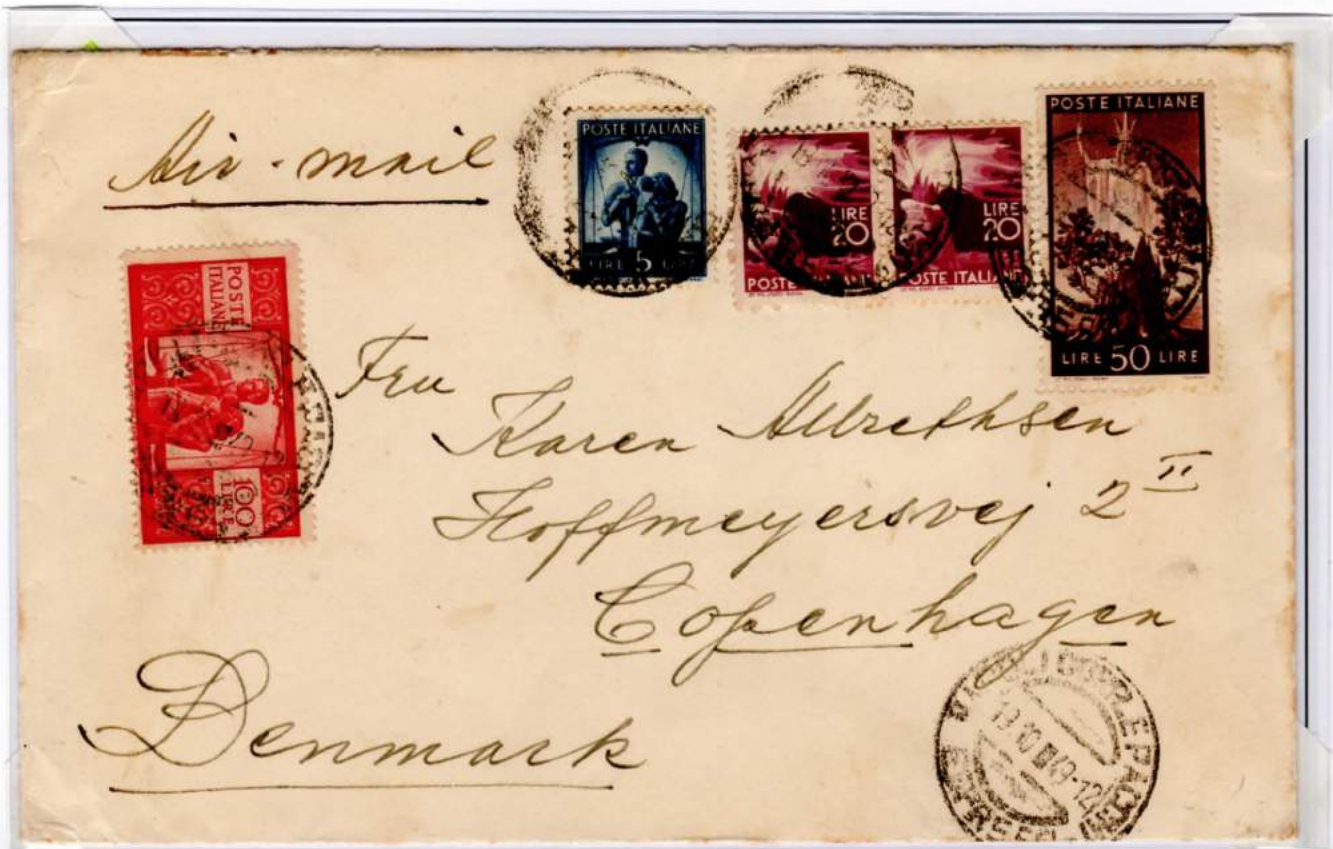 Air-mail
POSTE ITALIANE
LIRE 5 LIRE
LIRE
20
POSTE ITALIANE
LIRE
20
POSTE ITALIANE
POSTE ITALIANE
LIRE 50 LIRE
POSTE
ITALIANE
100
LIRE
Fru
Karen Albrethsen
Hoffmeyersvej 2 II
Copenhagen
Denmark